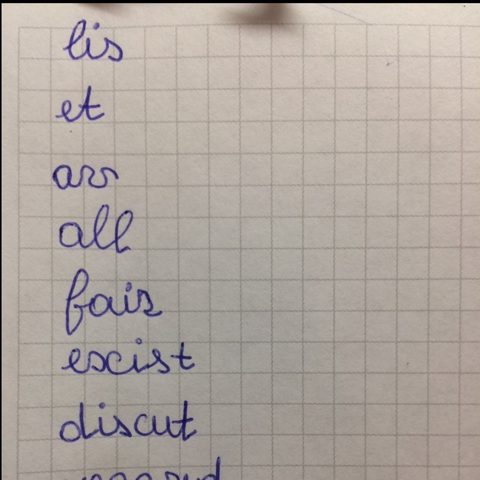 lis
et
arr
all
fais
excist
discut